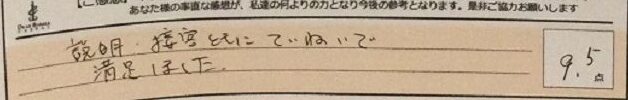 あなた様の率直な感想が、私達の何よりの力となり今後の参考となります。是非ご協力お願いします
説明・接客ともにていねいで
満足しました。
9.5点